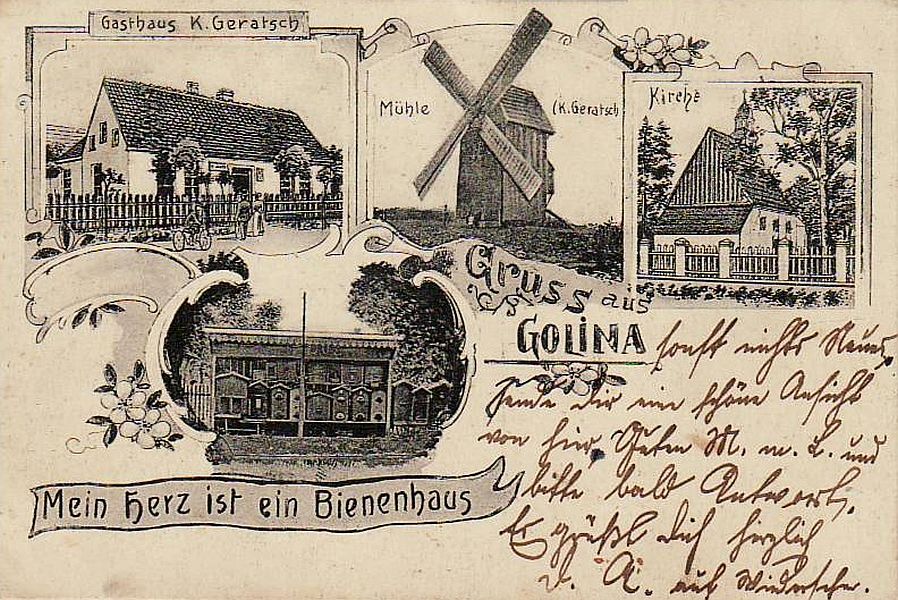 Gasthaus K. Geratsch
Mühle (K. Geratsch
Kirche
Gruss aus
GOLINA
Mein Herz ist ein Bienenhaus
sonst nichts Neues,
sende dir eine schöne Ansicht
von hier, Guten M. m. L. und
bitte bald Antwort.
Es grüßt dich herzlich
d. A. auf Wiedersehn.